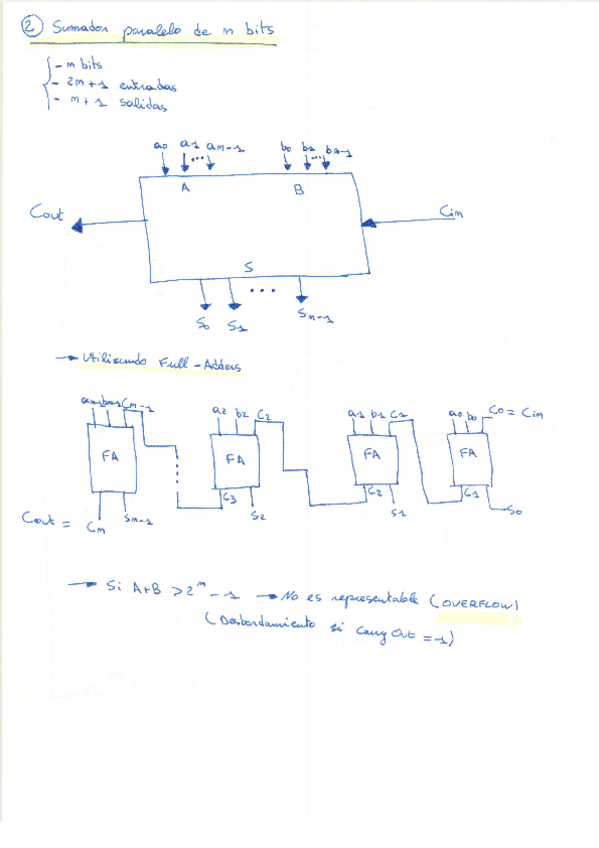 2 Sumador paralelo de n bits
- n bits
- 2n+1 entradas
- n+1 salidas
a0 a1 ... an-1 b0 b1 ... bn-1
A B
Cout Cin
S
S0 S1 ... Sn-1
→ Utilizando Full-Adders
an-1 bn-1 Cn-1 a2 b2 C2 a1 b1 C1 a0 b0 C0 = Cin
FA FA FA FA
C3 C2 C1
Cout = Cn Sn-1 S2 S1 S0
→ Si A+B > 2^n - 1 → No es representable (OVERFLOW)
(Desbordamiento si Carry Out = 1)